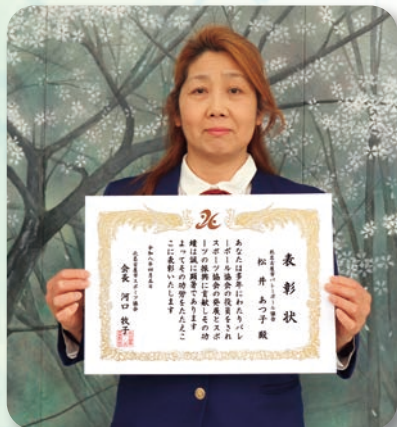 表彰状
北名古屋市バレーボール協会
松井あつ子殿
あなたは多年にわたりバレ
ーボール協会の役員をされ
スポーツ協会の発展とスポ
ーツの振興に貢献しその功
績は誠に顕著であります
よってその功労をたたえこ
こに表彰いたします
令和八年四月五日
北名古屋市スポーツ協会
会長 河口牧子